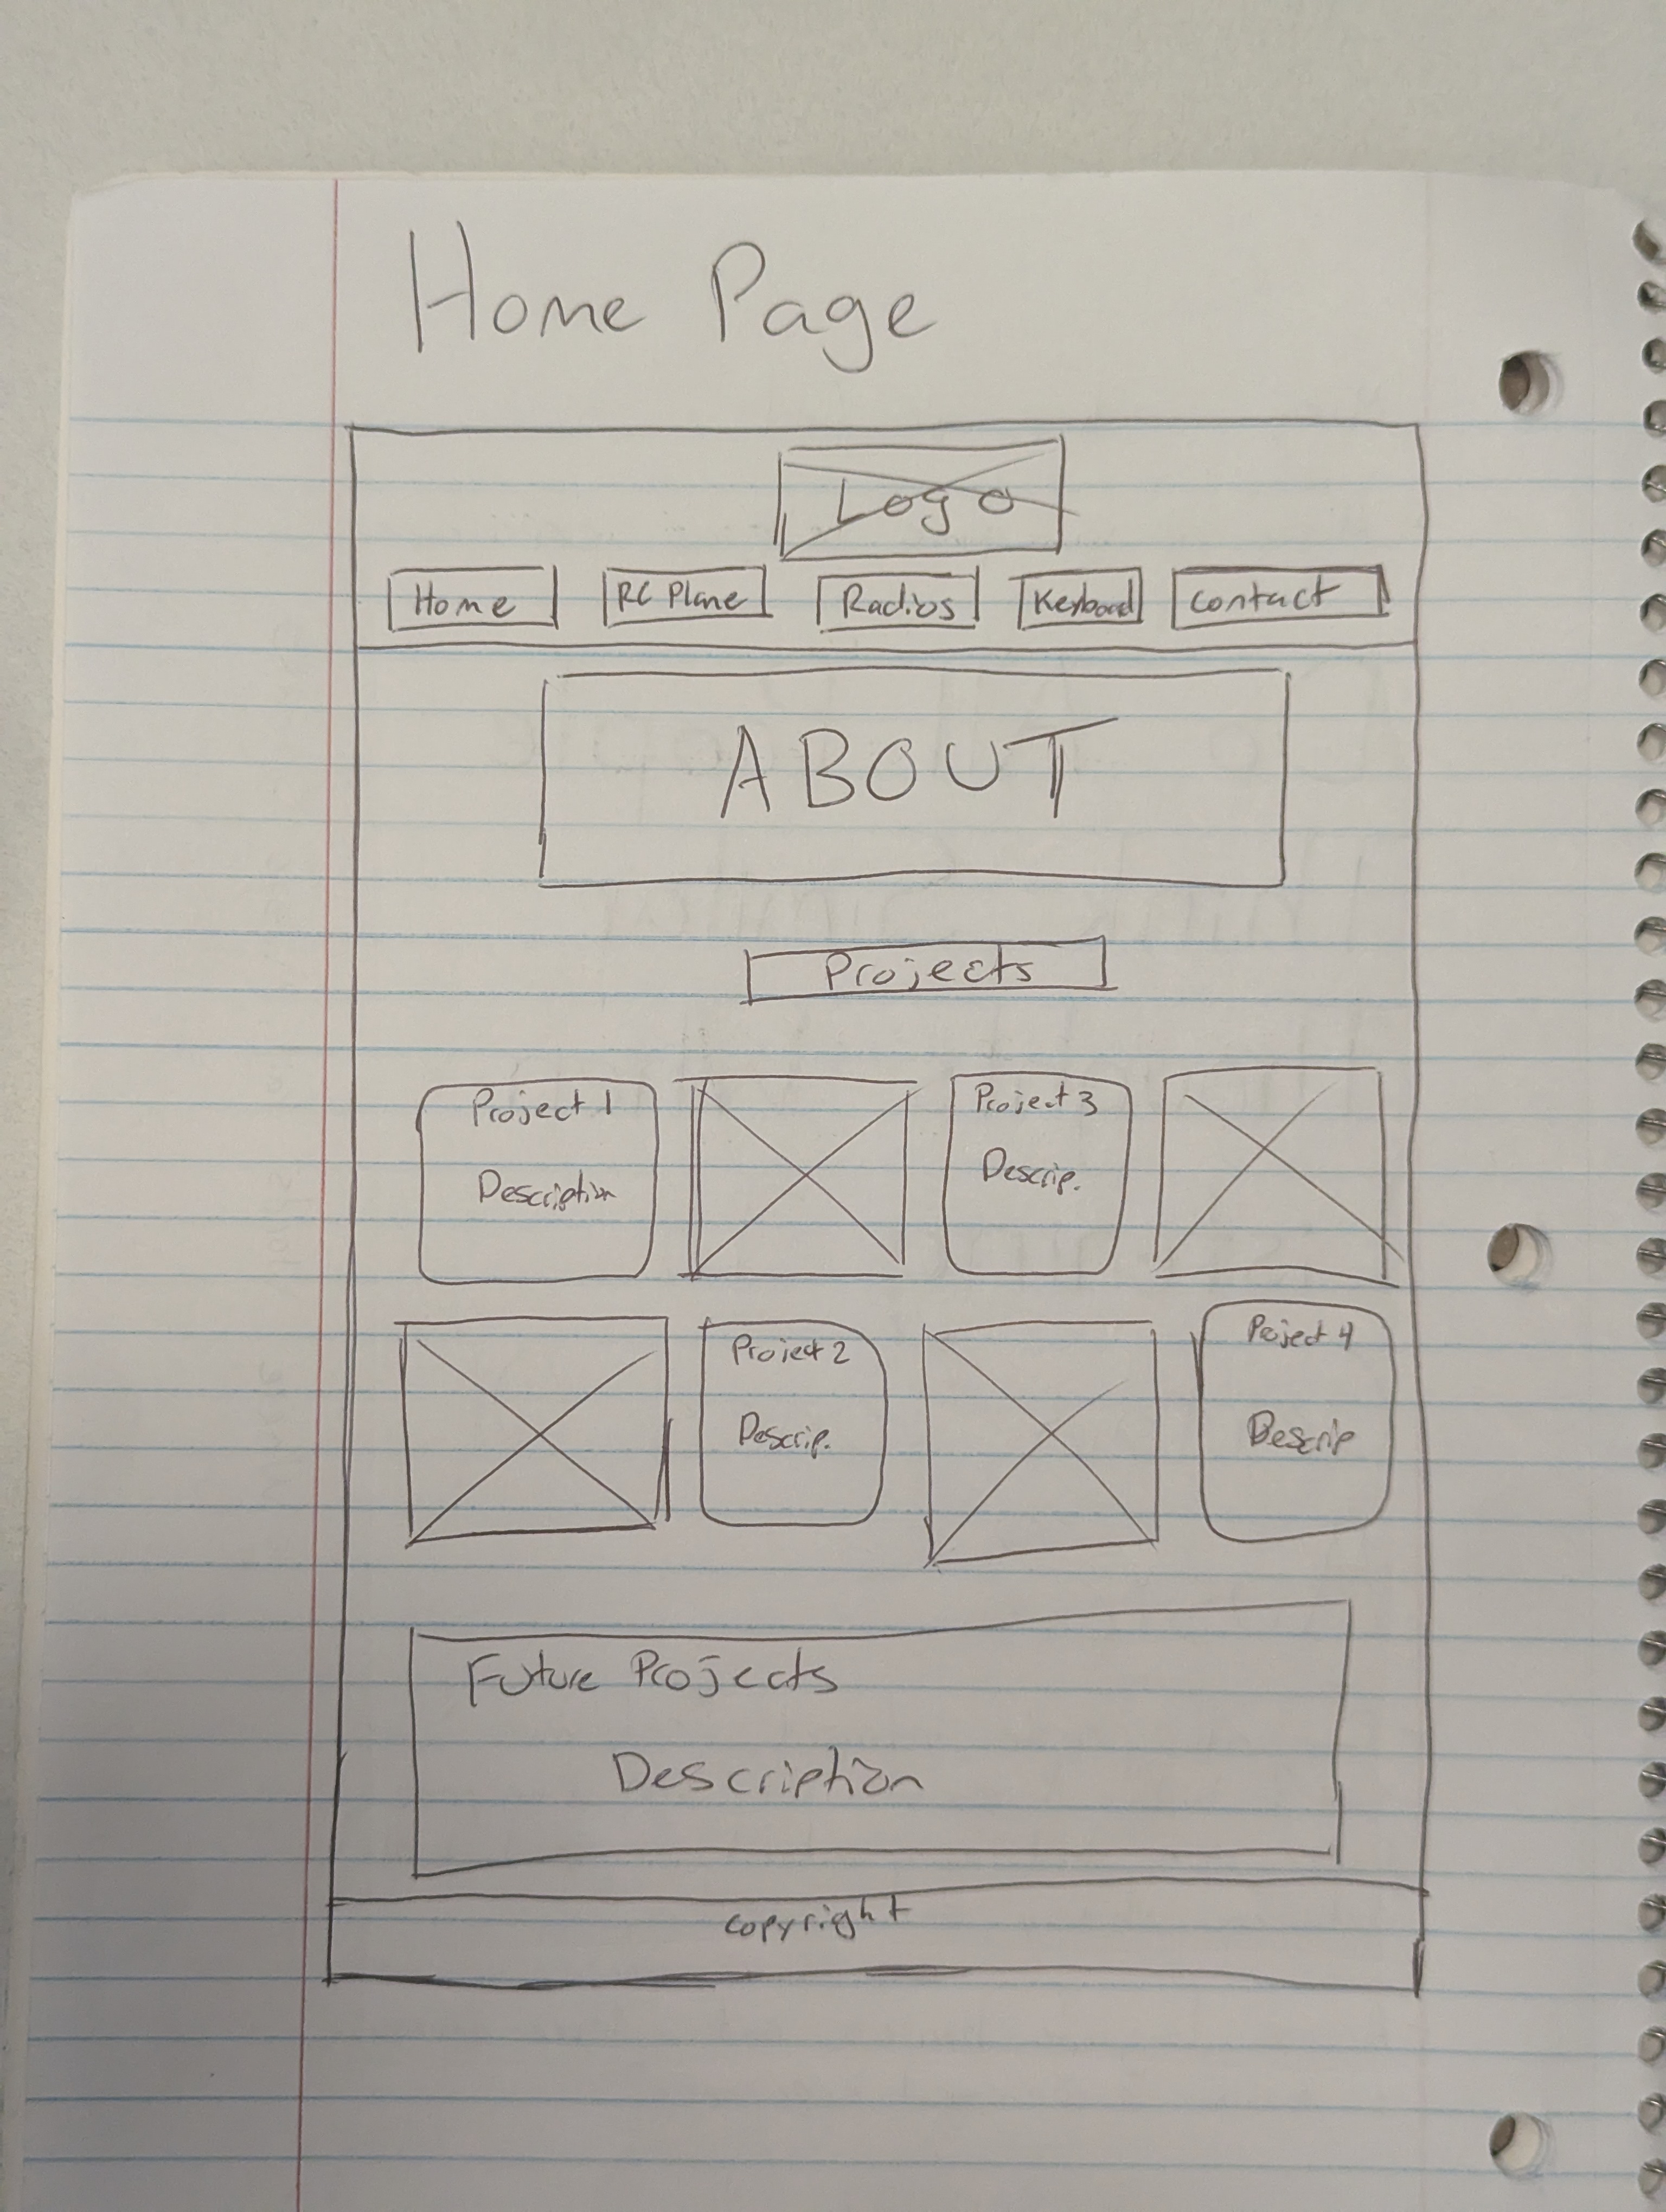 Home Page
Logo
Home RC Plane Radios Keyboard Contact
ABOUT
Projects
Project 1 Project 3
Description Descrip.
Project 2 Project 4
Descrip. Descrip
Future Projects
Description
copyright